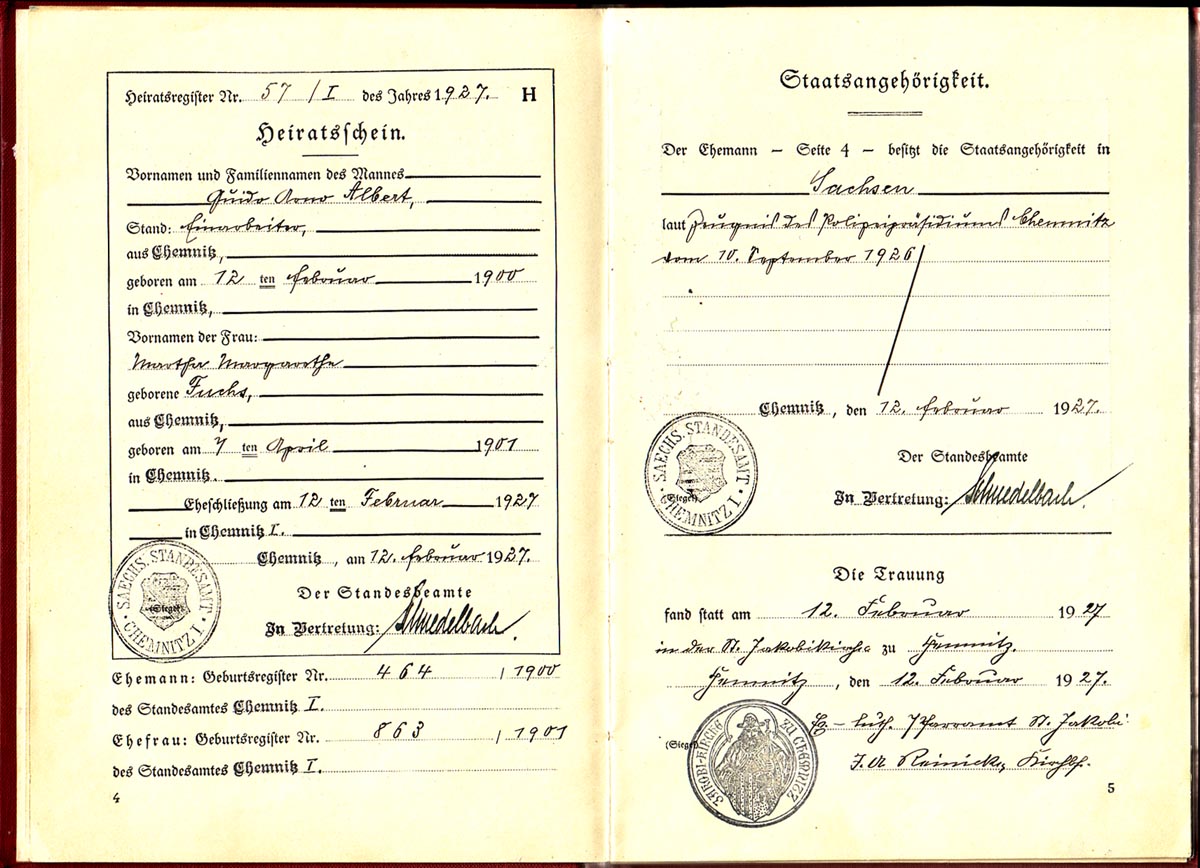 Heiratsregister Nr. 57 / I des Jahres 1927. H
Heiratsschein.
Vornamen und Familiennamen des Mannes
Guido Arno Albert,
Stand: Einarbeiter,
aus Chemnitz,
geboren am 12 ten Februar 1900
in Chemnitz,
Vornamen der Frau:
Martha Margarethe
geborene Fuchs,
aus Chemnitz,
geboren am 7 ten April 1901
in Chemnitz.
Eheschließung am 12 ten Februar 1927
in Chemnitz I.
Chemnitz, am 12. Februar 1927.
Der Standesbeamte
In Vertretung: Schmedelbach.
SAECHS. STANDESAMT CHEMNITZ I.
(Siegel)
Ehemann: Geburtsregister Nr. 464 / 1900
des Standesamtes Chemnitz I.
Ehefrau: Geburtsregister Nr. 863 / 1901
des Standesamtes Chemnitz I.
4
Staatsangehörigkeit.
Der Ehemann – Seite 4 – besitzt die Staatsangehörigkeit in
Sachsen
laut Zeugnis des Polizeipräsidiums Chemnitz
vom 10. September 1926
Chemnitz, den 12. Februar 1927.
Der Standesbeamte
In Vertretung: Schmedelbach.
SAECHS. STANDESAMT CHEMNITZ I.
(Siegel)
Die Trauung
fand statt am 12. Februar 1927
in der St. Jakobikirche zu Chemnitz
Chemnitz, den 12. Februar 1927.
Ev.-luth. Pfarramt St. Jakobi
(Siegel)
I. A. Reinicke, Kirchb.
JAKOBI-KIRCHE ZU CHEMNITZ
5